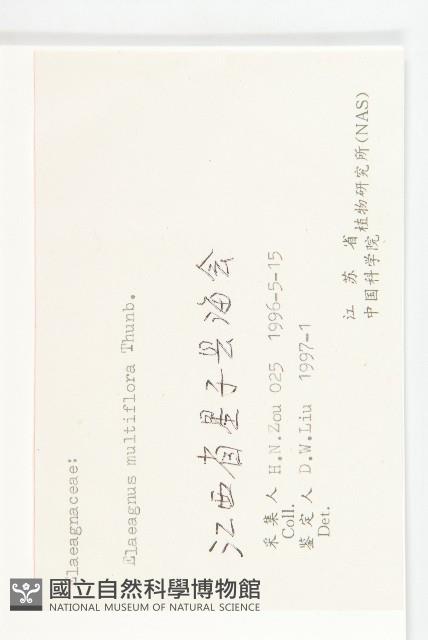 Elaeagnaceae:
Elaeagnus multiflora Thunb.
江西省星子县海会
采集人 H.N.Zou 025 1996-5-15
Coll.
鉴定人 D.W.Liu 1997-1
Det.
江苏省植物研究所(NAS)
中国科学院
國立自然科學博物館
NATIONAL MUSEUM OF NATURAL SCIENCE